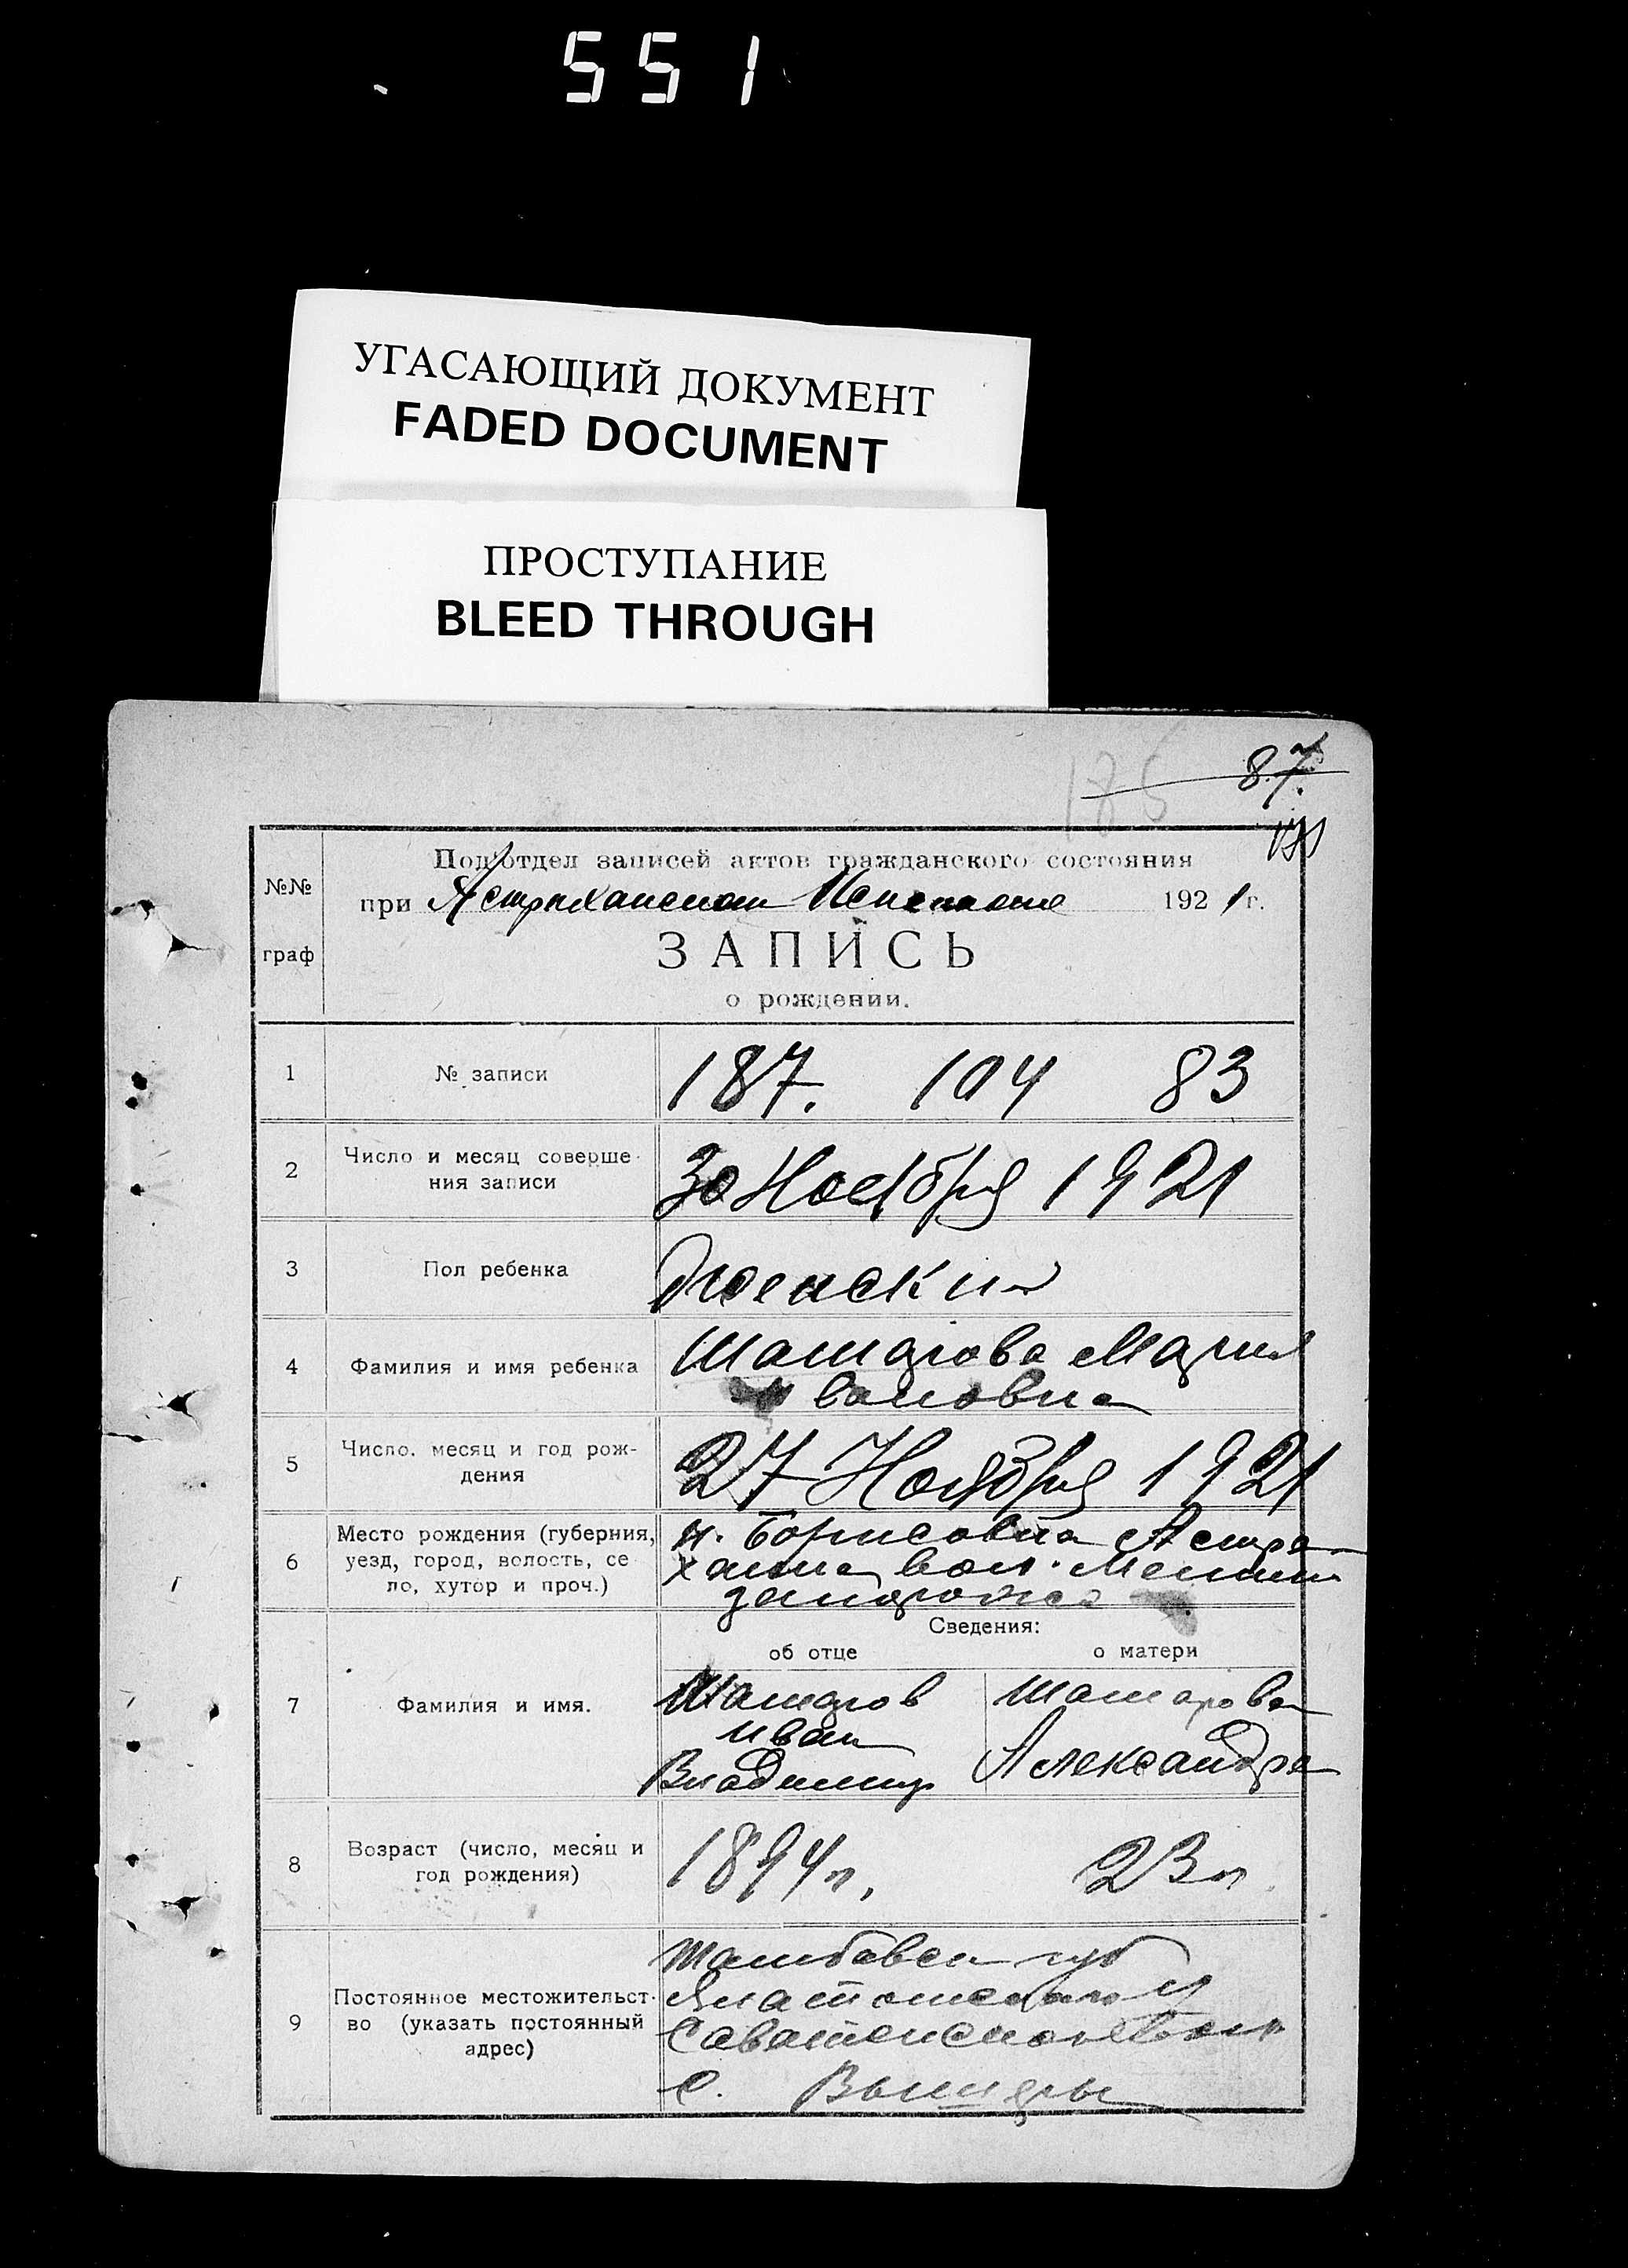 551
УГАСАЮЩИЙ ДОКУМЕНТ
FADED DOCUMENT
ПРОСТУПАНИЕ
BLEED THROUGH
175
87.
№№ граф
Подотдел записей актов гражданского состояния
при Астраханском 1921 г.
ЗАПИСЬ
о рождении.
1 № записи 187. 104 83
2 Число и месяц соверше-
ния записи 30 Ноября 1921
3 Пол ребенка Женский
4 Фамилия и имя ребенка Шатарова Мария
Ивановна
5 Число. месяц и год рож-
дения 27 Ноября 1921
6 Место рождения (губерния, н. Борисовка Астра
уезд, город, волость, се хана вол.
ло, хутор и проч.)
Сведения:
об отце о матери
7 Фамилия и имя. Шатаров Шатарова
Иван
Владимир Александра
8 Возраст (число, месяц и
год рождения) 1894 г. 23 л
9 Постоянное местожительст-
во (указать постоянный
адрес)
Тамбовск губ
с.